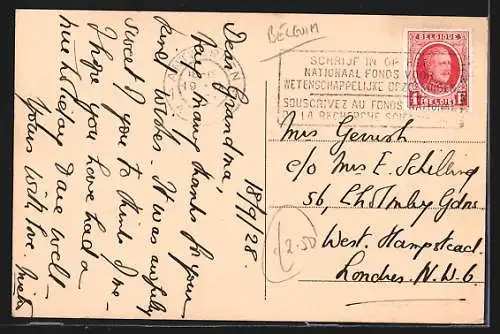 BELGIUM
BELGIQUE
1F BELGIË 1F
ANTWERPEN
SCHRIJF IN OP
NATIONAAL FONDS VOOR
WETENSCHAPPELIJKE OPZ
SOUSCRIVEZ AU FONDS NATIONAL
LA RECHERCHE SCI
18/9/28.
Dear Grandma,
Very many thanks for your
kind wishes. It was awfully
sweet of you to think of me -
I hope you have had a
nice holiday & are well -
Yours with love.
Mrs Gerrish
c/o Mrs E. Schilling
56, Cholmley Gdns
West. Hampstead.
Londres. N.W.6.
2.50